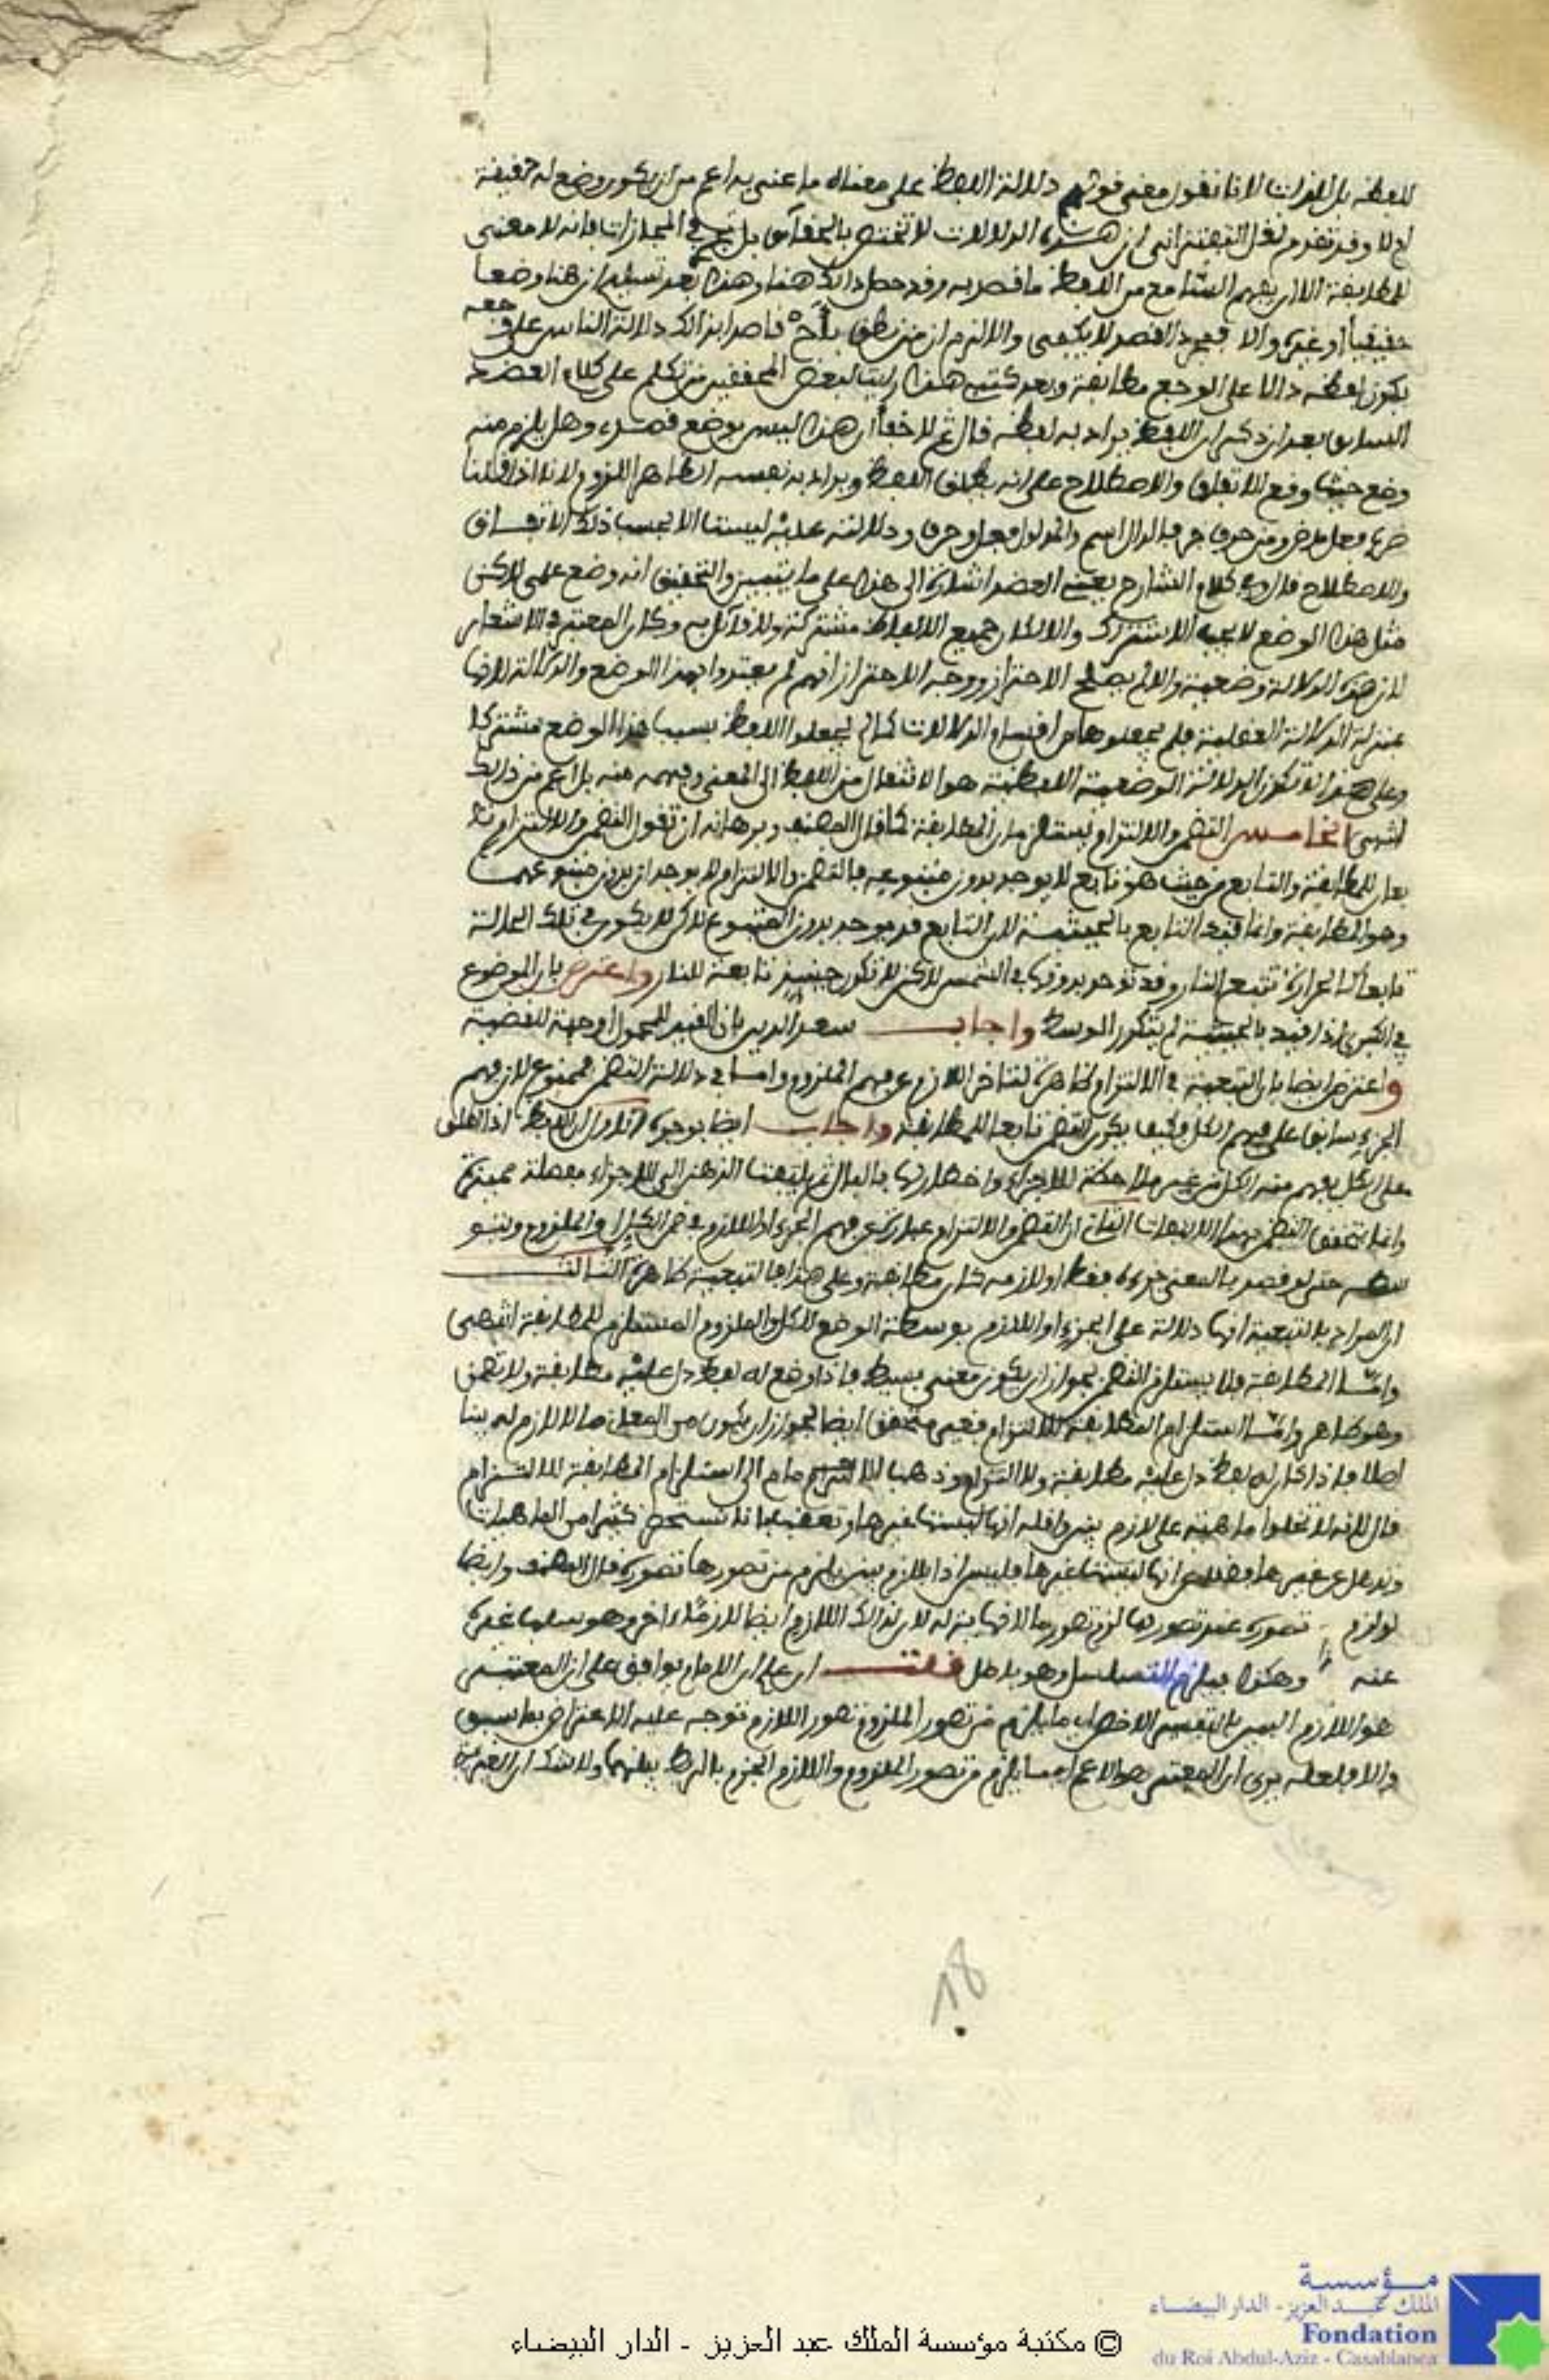 للفظه بل للذات لانا نقول معنى قولهم دلالة اللفظ على معناه ما عني به اعم من ان يكون وضع له حقيقة
ام لا وقد تقدم نقل التفتزاني ان هذه الدلالات لا تختص بالحقآئق بل تجري في المجازات فانه لا معنى
للمطابقة الا ان يفهم السامع من اللفظ ما قصد به وقد حصل ذالك هنا وهذا بعد تسليم ان هنا وضعا
حقيقيا او غيره والا فمجرد القصد لا يكفي والا لزم ان من نطق بأح قاصدا بذالك دلالة الناس على وجعه
يكون لفظه دالا على الوجع مطابقة وبعد كتبي هذا رايت لبعض المحققين من تكلم على كلام العضد
السابق بعد ان ذكر ان اللفظ يراد به لفظه قال ثم لا خفاء ان هذا ليس بوضع قصدي وهل يلزم منه
وضع حيث وقع الاتفاق والاصطلاح على انه يطلق اللفظ ويراد به نفسه الظاهر اللزوم لانا اذا قلنا
ضرب فعل ماض ومن حرف جر فالدال اسم والمدلول فعل وحرف ودلالته عليه ليست الا بحسب ذلك الاتفاق
والاصطلاح قال وفي كلام الشارح يعني العضد اشارة الى هذا على ما يتبين والتحقيق انه وضع علمي لاكن
مثل هذا الوضع لا يوجب الاشتراك والا لكان جميع الالفاظ مشتركة ولا قآئل به وكان المعتبر في الاشعار
لان هذه الدلالة وضعية والا لم يصلح الاحتراز ووجه الاحتراز انهم لم يعتدوا بهذا الوضع والدلالة لانها
بمنزلة الدلالة العقلية فلم يجعلوها من اقسام الدلالات كما لم يجعلوا اللفظ بسبب هذا الوضع مشتركا
وعلى هذا لا تكون الدلالة الوضعية اللفظية هو الانتقال من اللفظ الى المعنى وفهمه منه بل اعم من ذالك
انتهى الخامس التضمن والالتزام يستلزمان المطابقة كما قال المصنف وبرهانه ان تقول التضمن والالتزام تا
بعان للمطابقة والتابع من حيث هو تابع لا يوجد بدون متبوعه فالتضمن والالتزام لا يوجدان بدون متبوعهما
وهو المطابقة وانما قيد التابع بالحيثية لان التابع قد يوجد بدون المتبوع لاكن لا يكون في تلك الحالة
تابعا كالحرارة تتبع النار وقد توجد بدونها في الشمس لاكن لا تكون حينئذ تابعة للنار واعترض بان الموضوع
في الكبرى اذا قيد بالحيثية لم يتكرر الوسط واجاب سعد الدين بان القيد للمحمول او جهة للقضية
واعترض ايضا بان التبعية في الالتزام ظاهرة لتاخر اللازم عن فهم الملزوم واما في دلالة التضمن فممنوع لان فهم
الجزء سابق على فهم الكل وكيف يكون التضمن تابعا للمطابقة واجاب ايضا بوجوه الاول ان اللفظ اذا اطلق
على الكل يفهم منه الكل من غير ملاحظة للاجزاء واخطارها بالبال ثم يلتفت الذهن الى الاجزاء مفصلة مميزة
وانما يتحقق التضمن بهذا الالتفات الثاني ان التضمن والالتزام عبارة عن فهم الجزء او اللازم في ضمن الكل او الملزوم وبتو
سطه حتى لو قصد بالمعنى جزءه فقط او لازمه كان مطابقة وعلى هذا فالتبعية ظاهرة الثالث
ان المراد بالتبعية انها دلالة على الجزء او اللازم بوسطة الوضع للكل والملزوم المستلزم للمطابقة انتهى
واما المطابقة فلا يستلزم التضمن لجواز ان يكون معنى بسيط فاذا وضع له لفظ دل عليه مطابقة ولا تضمن
وهو ظاهر واما استلزام المطابقة للالتزام فغير متحقق ايضا لجواز ان يكون من المعاني ما لا لازم له بينا
اصلا فاذا كان له لفظ دل عليه مطابقة ولا التزام وذهب الامام الى استلزام المطابقة للالتزام
قال لانه لا تخلوا ماهية على لازم بين واقله انها ليست غيرها وتعقب بانا نستحضر كثيرا من الماهيات
ونذهل عن غيرها فضلا عن انها ليست غيرها فليس اذا بلازم بين يلزم من تصورها تصوره قال المصنف وايضا
لو لزم تصوره عند تصورها لزم تصور ما لا نهاية له لان لذالك اللازم ايضا لازما اخر وهو سلب غيره
عنه وهكذا فيلزم التسلسل وهو باطل قلت ان علم ان الامام يوافق على ان المعتبر
هو اللازم البين بالتفسير الاخص اي ما يلزم من تصور الملزوم تصور اللازم توجه عليه الاعتراض بما سبق
والا فلعله يرى ان المعتبر هو الاعم اي ما يلزم من تصور الملزوم واللازم الجزم بالربط بينهما ولا شك ان الغيرية
18
مؤسسة
الملك عبد العزيز - الدار البيضاء
Fondation
du Roi Abdul-Aziz - Casablanca
© مكتبة مؤسسة الملك عبد العزيز - الدار البيضاء